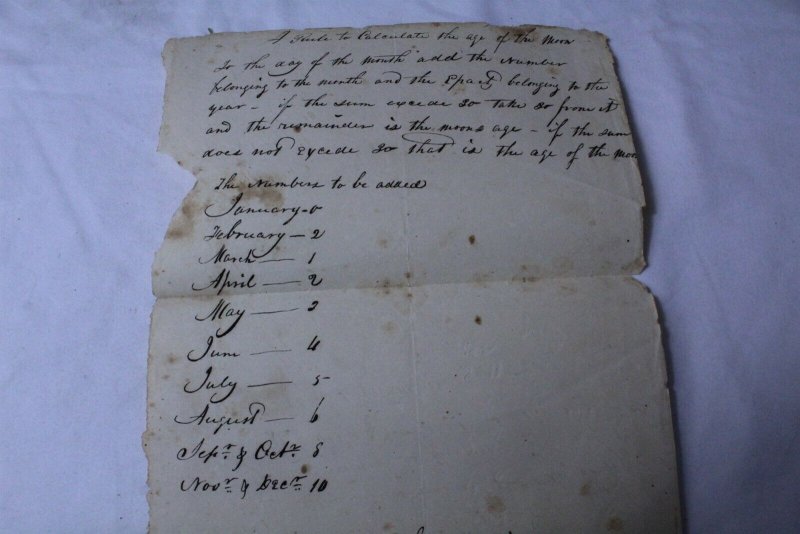 A Rule to Calculate the age of the Moon
To the day of the month add the Number
belonging to the month and the Epact belonging to the
year – if the sum excede 30 take 30 from it
and the remainder is the moons age – if the sum
does not Excede 30 that is the age of the Moon
The Numbers to be added
January – 0
February – 2
March — 1
April — 2
May — 3
June — 4
July — 5
August — 6
Sepr. & Octr. 8
Novr. & Decr. 10